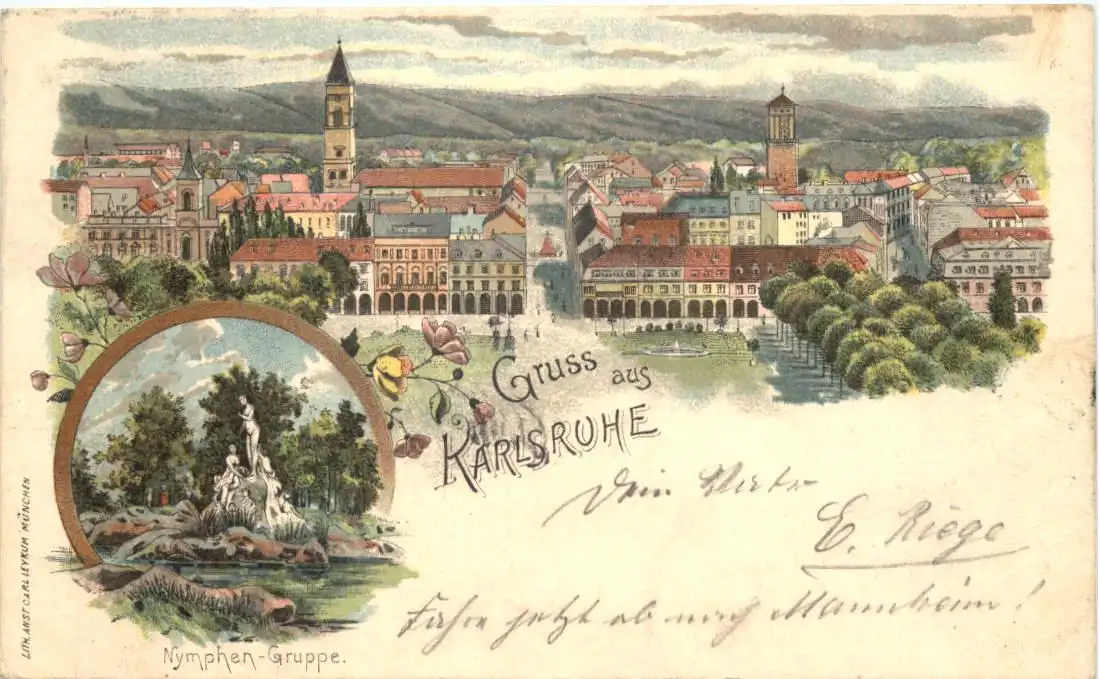 Gruss aus
KARLSRUHE
Dein
E. Riege
Fahre jetzt ab nach Mannheim!
Nymphen-Gruppe.
LITH. ANST. CARL LEYKUM MÜNCHEN